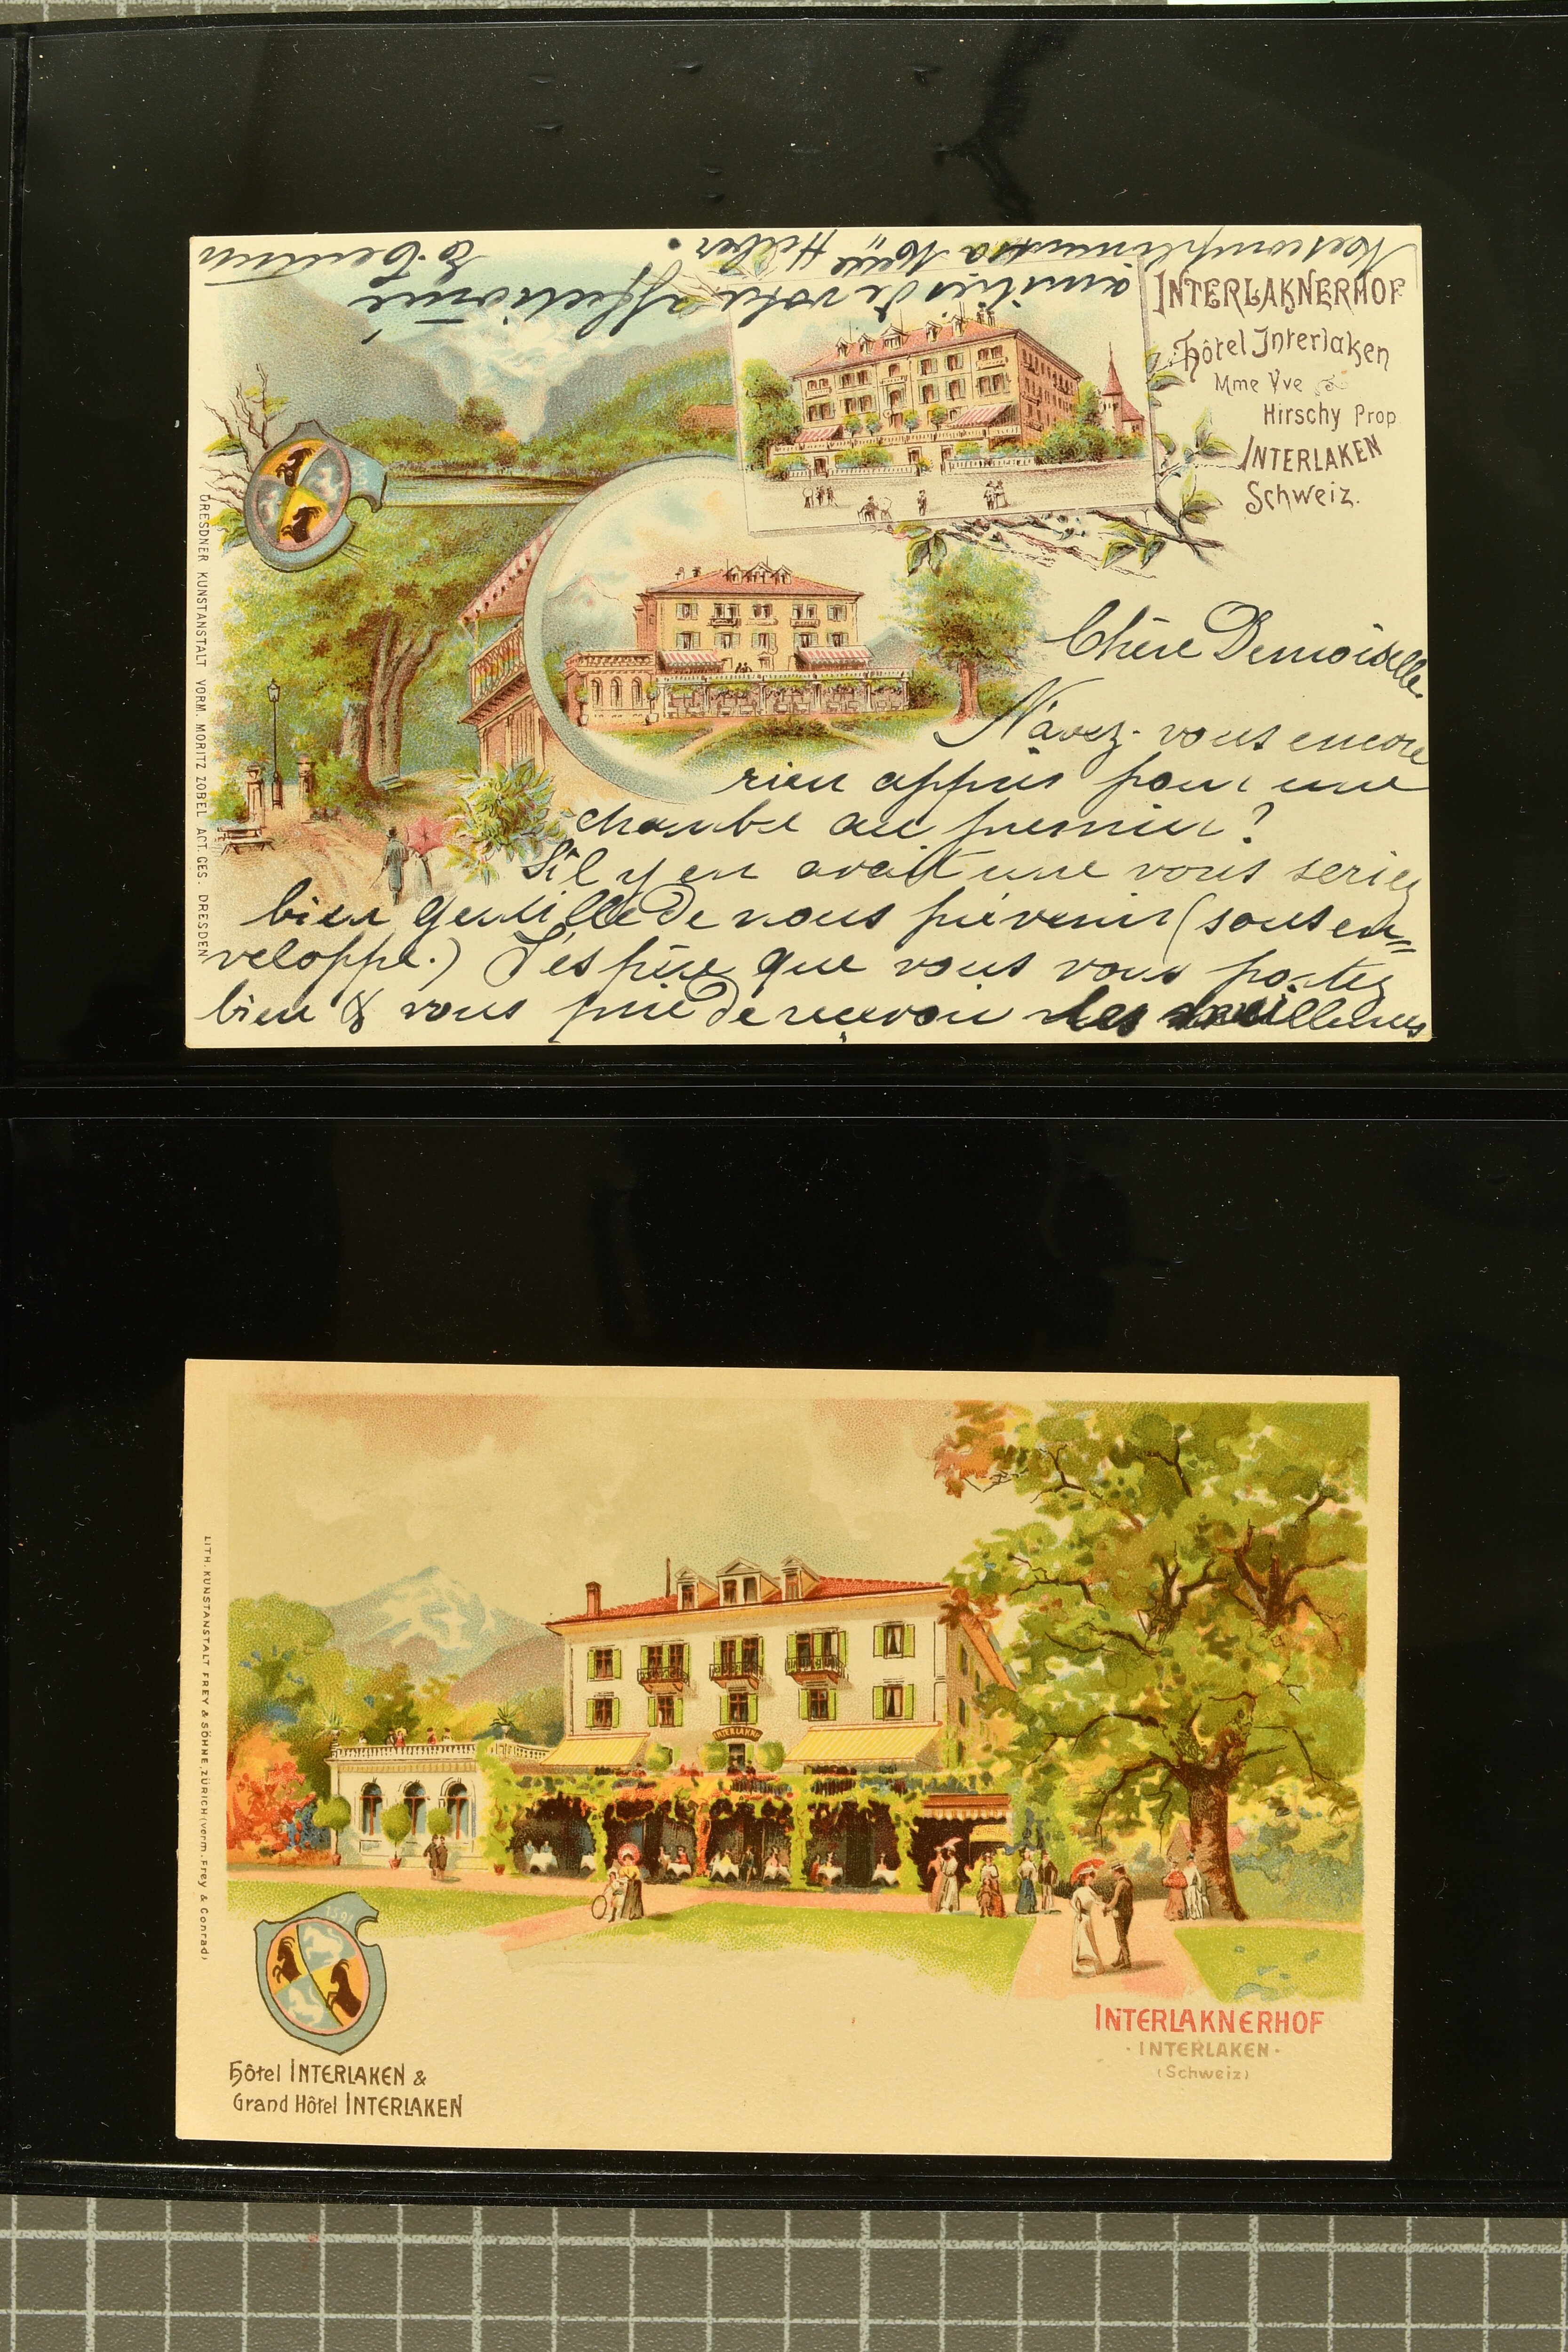 INTERLAKNERHOF
Hôtel Interlaken
Mme Vve
Hirschy Prop
INTERLAKEN
Schweiz.
1591
DRESDNER KUNSTANSTALT VORM. MORITZ ZOBEL ACT. GES. DRESDEN
Chère Demoiselle.
N'avez-vous encore
rien appris pour une
chambe au premier?
S'il y en avait une vous seriez
bien gentille de nous prévenir (sous en=
veloppe.) J'éspère que vous vous portez
bien & vous prie de recevoir les meilleures
amitiés de votre affectionné
Mes compliments a Mme Hélber.
1591
LITH. KUNSTANSTALT FREY & SÖHNE, ZÜRICH (vorm. Frey & Conrad)
INTERLAKEN
Hôtel INTERLAKEN &
Grand Hôtel INTERLAKEN
INTERLAKNERHOF
· INTERLAKEN ·
(Schweiz)